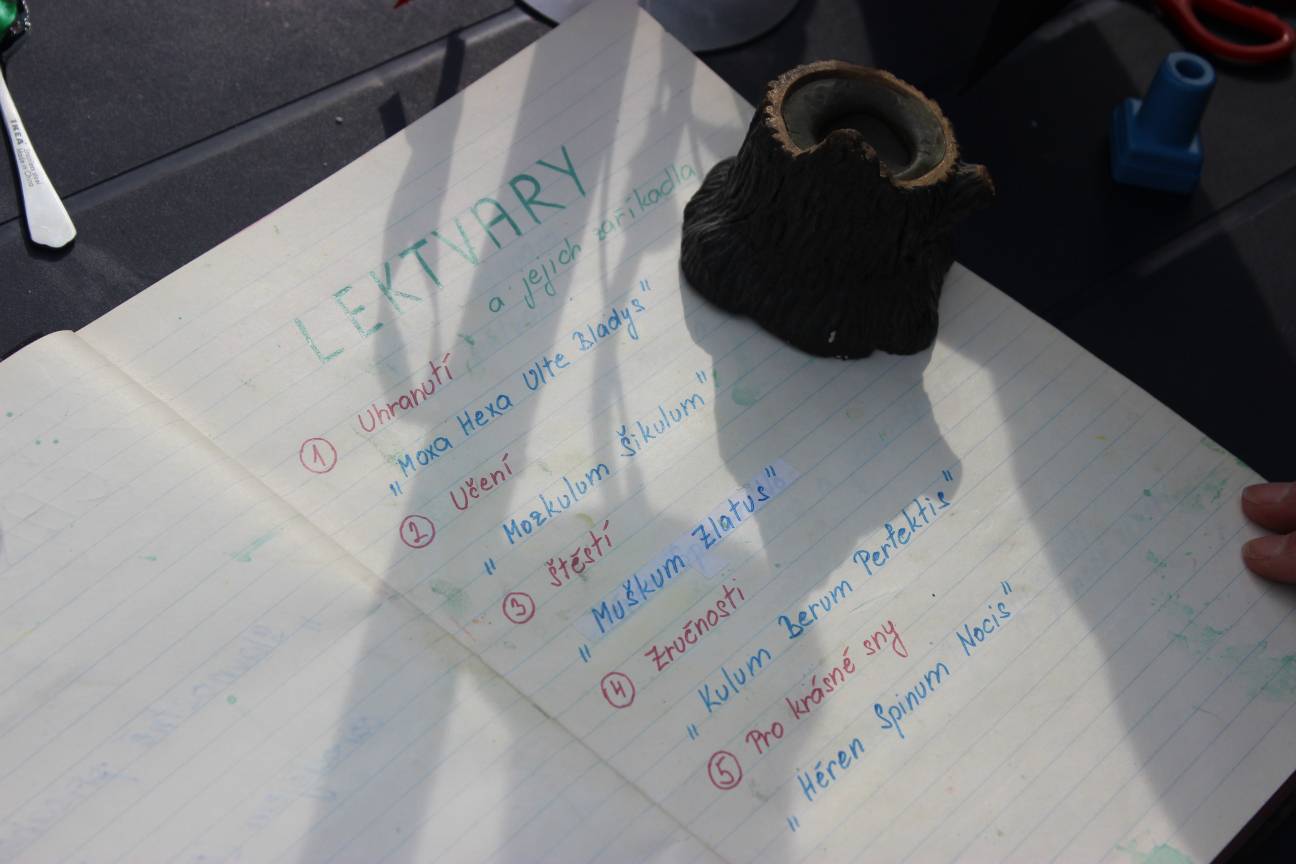 LEKTVARY
a jejich zaříkadla
1 Uhranutí
„Moxa Hexa Ulte Bladys"
2 Učení
„Mozkulum Šikulum"
3 štěstí
„Muškum Zlatus"
4 Zručnosti
„Kulum Berum Perfektis"
5 Pro krásné sny
„Héren Spinum Nocis"
IKEA